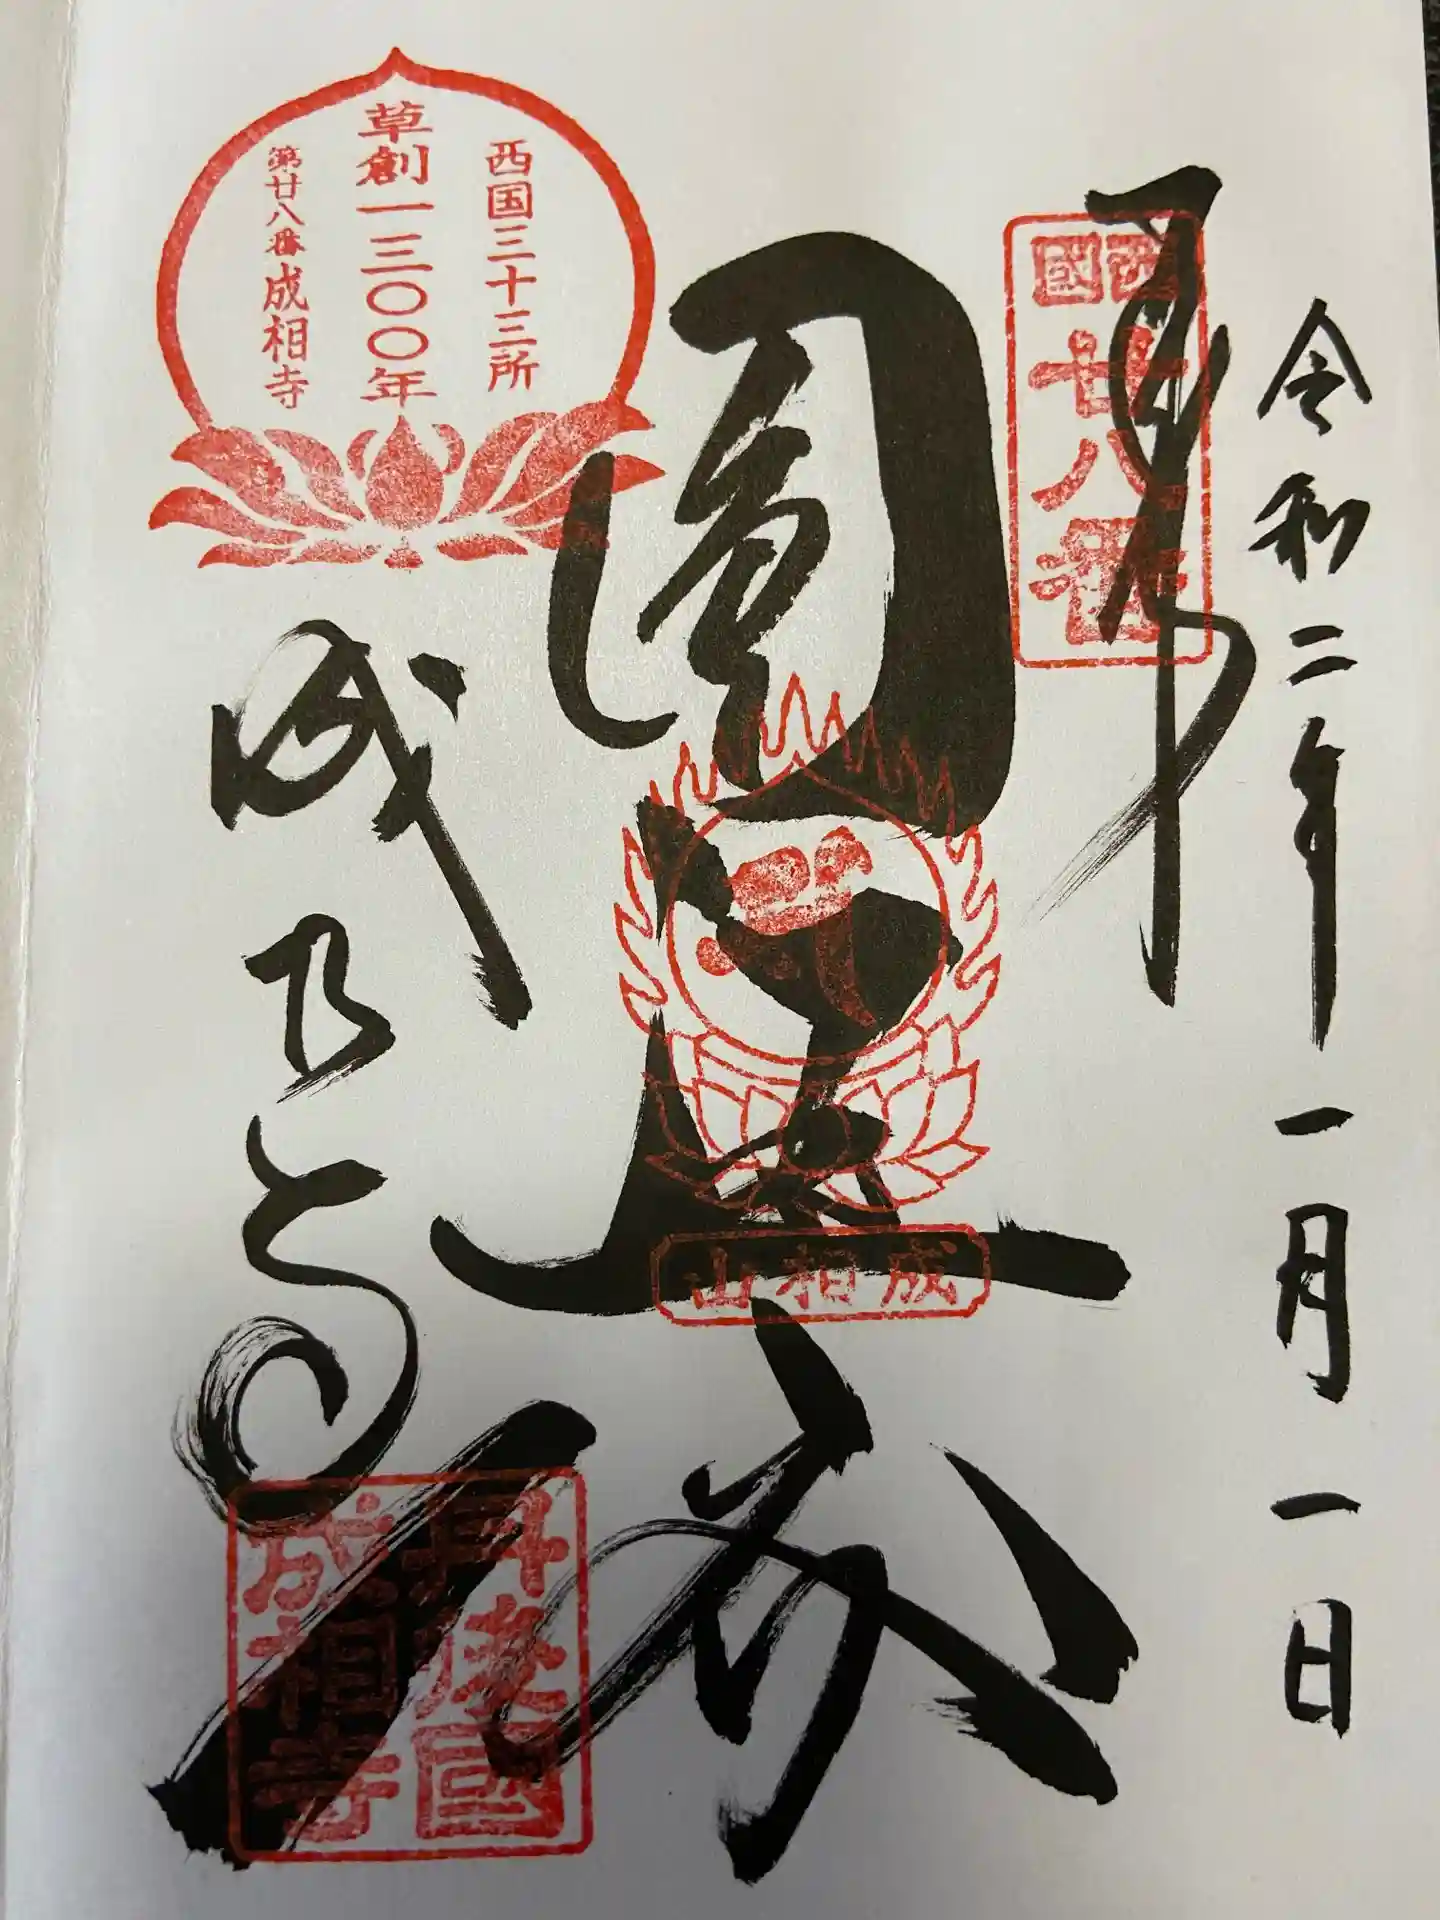 令和二年一月一日
奉拝
西國
廿八番
圓通
成相山
西国三十三所
草創一三〇〇年
第廿八番成相寺
成相寺
丹後國
成相寺